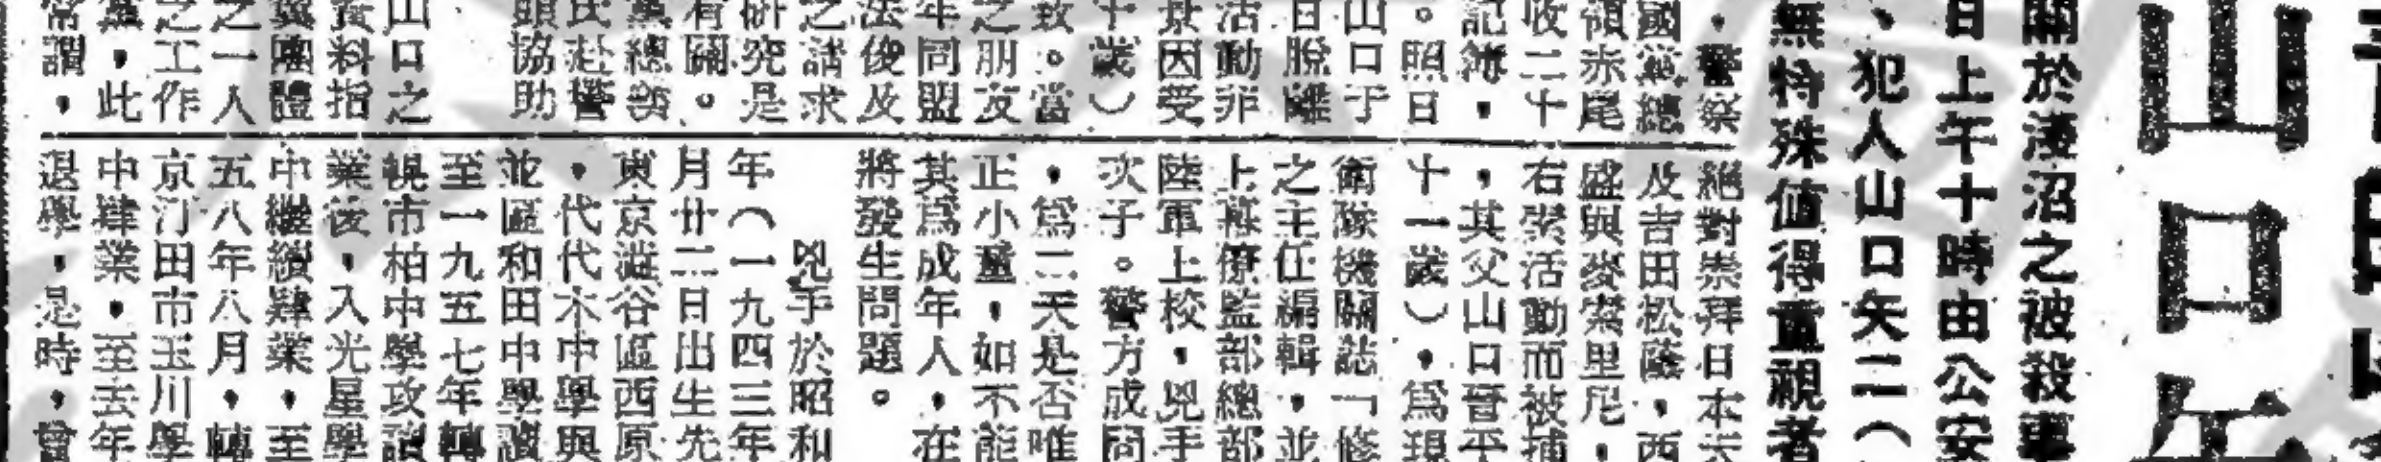 山口午
關於淺沼之被殺事
日上午十時由公安
、犯人山口矢二（
無特殊值得重視者
，警察
國黨總
領赤尾
收二十
記簿，
。照日
山口于
日脫離
活動非
景因受
十歲）
致。當
之朋友
年同盟
法俊及
之請求
研究是
有關。
黨總部
氏赴警
頭協助
山口之
資料指
翼團體
之一人
之工作
無，此
常謂，
絕對崇拜日本天
及吉田松蔭，西
盛與麥索里尼，
右索活動而被捕
，其父山口晉平
十一歲），爲現
衛隊機關誌「修
之主任編輯，並
上幕僚監部總部
陸軍上校，兇手
次子。警方成問
，爲二天是否唯
正小童，如不能
其爲成年人，在
將發生問題。
兇手於昭和
年（一九四三年
月廿二日出生先
東京澁谷區西原
，代代木中學與
並區和田中學讀
至一九五七年轉
幌市柏中學攻讀
業後，入光星學
中繼續肄業，至
五八年八月，轉
京汀田市玉川學
中肄業，至去年
退學，是時，曾